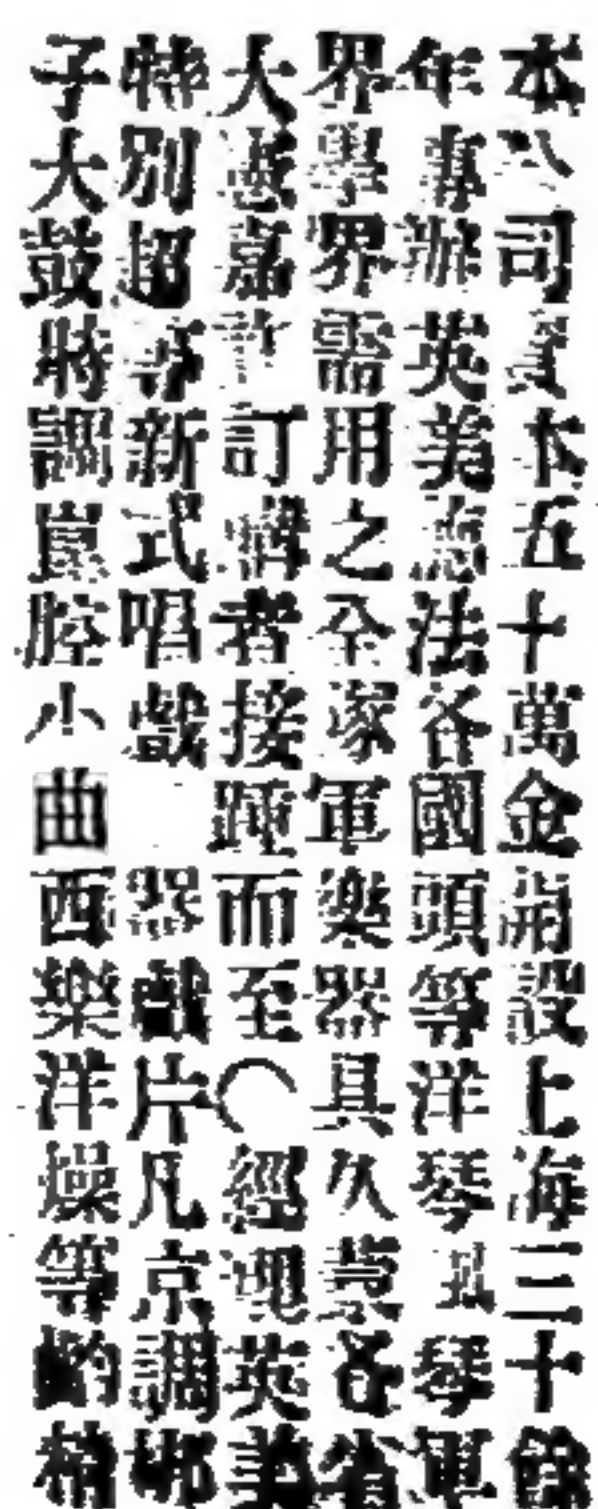 本公司資本五十萬金開設上海三十餘
年專辦英美德法各國頭等洋琴風琴軍
界學界需用之全家軍樂器具久蒙各省
大憲嘉許訂購者接踵而至○經理英美
特別超等新式唱戲 器戲片凡京調梆
子大鼓時調崑腔小曲西樂洋操等齣精